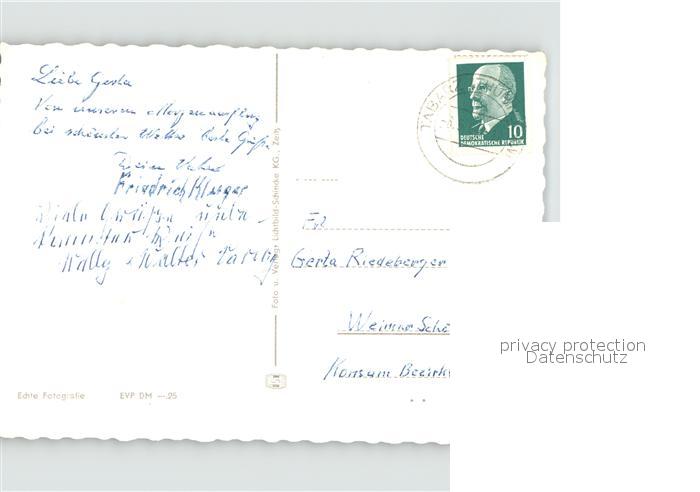 Liebe Gerta
Von unserem Morgenausflug
bei schönstem Wetter beste Grüße
Friedrich Klinger
Viele Grüße
Wally + Walter
Foto u. Verlag: Lichtbild-Schincke KG., Zeitz
Echte Fotografie EVP DM —.25
TABARZ
10
DEUTSCHE
DEMOKRATISCHE REPUBLIK
Frl
Gerta Riedeberger
Weimar Schö
Konsum Bezirk
privacy protection
Datenschutz